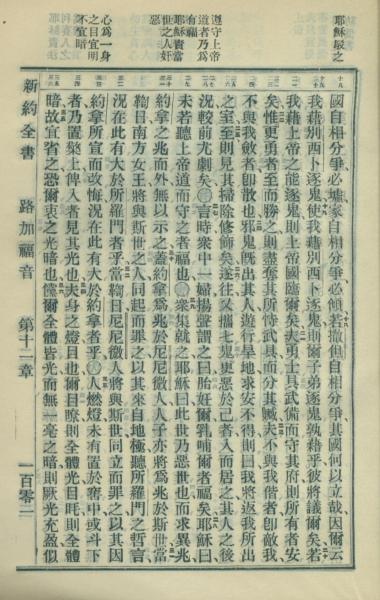 耶穌駁之
遵守上帝
道者乃爲
有福
耶穌責當
世之人奸
惡
心爲一身
之目宜明
不宜暗
國自相分爭必墟家自相分爭必傾若撒但自相分爭其國何以立哉因爾云
我藉別西卜逐鬼使我藉別西卜逐鬼則爾子弟逐鬼孰藉乎彼將議爾矣若
我藉上帝之能逐鬼則上帝國臨爾矣夫勇士具武備而守其府則所有者安
矣惟更勇者至而勝之則盡奪其所恃武具而分其贓夫不與我偕者卽敵我
不與我斂者卽散也邪鬼旣出其人遊行旱地求安不得則曰我將返我所出
之室至則見其掃除修飾矣遂往又攜七鬼更惡於己者入而居之其人之後
況較前尤劇矣〇言時衆中一婦揚聲謂之曰胎妊爾乳哺爾者福矣耶穌曰
未若聽上帝道而守之者福也〇衆集就之耶穌曰此世乃惡世也而求異兆
約拿之兆而外無以示之蓋約拿爲兆於尼尼微人人子亦將爲兆於斯世當
鞫日南方女王將與斯世之人同起而罪之以其來自地極聽所羅門之哲言
況在此有大於所羅門者乎當鞫日尼尼微人將與斯世同立而罪之以其因
約拿所宣而改悔況在此有大於約拿者乎〇人燃燈未有置於窖中或斗下
者乃置檠上俾入者見其光也夫身之燈目也爾目瞭則全體光目眊則全體
暗故宜省之恐爾衷之光暗也儻爾全體皆光而無一毫之暗則厥光充盈似
新約全書 路加福音 第十一章 一百零二